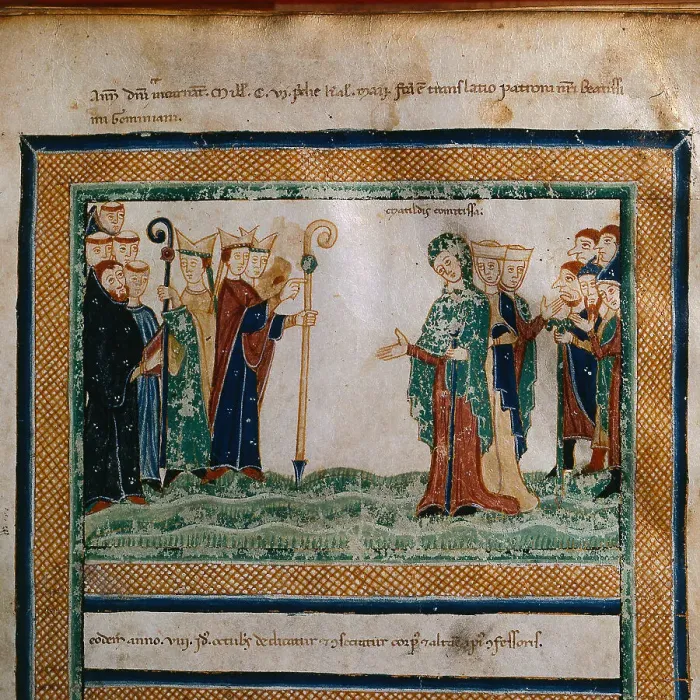 Ann dnī incarnat. Mill. C. vi. pdie kal. maii. fca ē translatio patroni nri Beatissi
mi Geminiani.
Matildis comitissa.
eodem anno. viii. id. octubs dedicatur 7 consecratur corp 7 altare xpi confessoris.